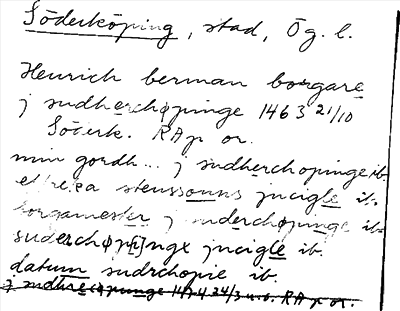 Söderköping, stad, Ög. l.
Henrich berman borgare
j sudherchøpinge 1463 21/10
Söderk. RAp or.
min gordh... j sudherchopinge ib.
stenssouns jncigle ib.
borgamester j suderchøpunge ib.
suderchøp[i]nge jncigle ib.
datum sudrchopie ib.
j sudhrechøpunge 24/3 RAp or.